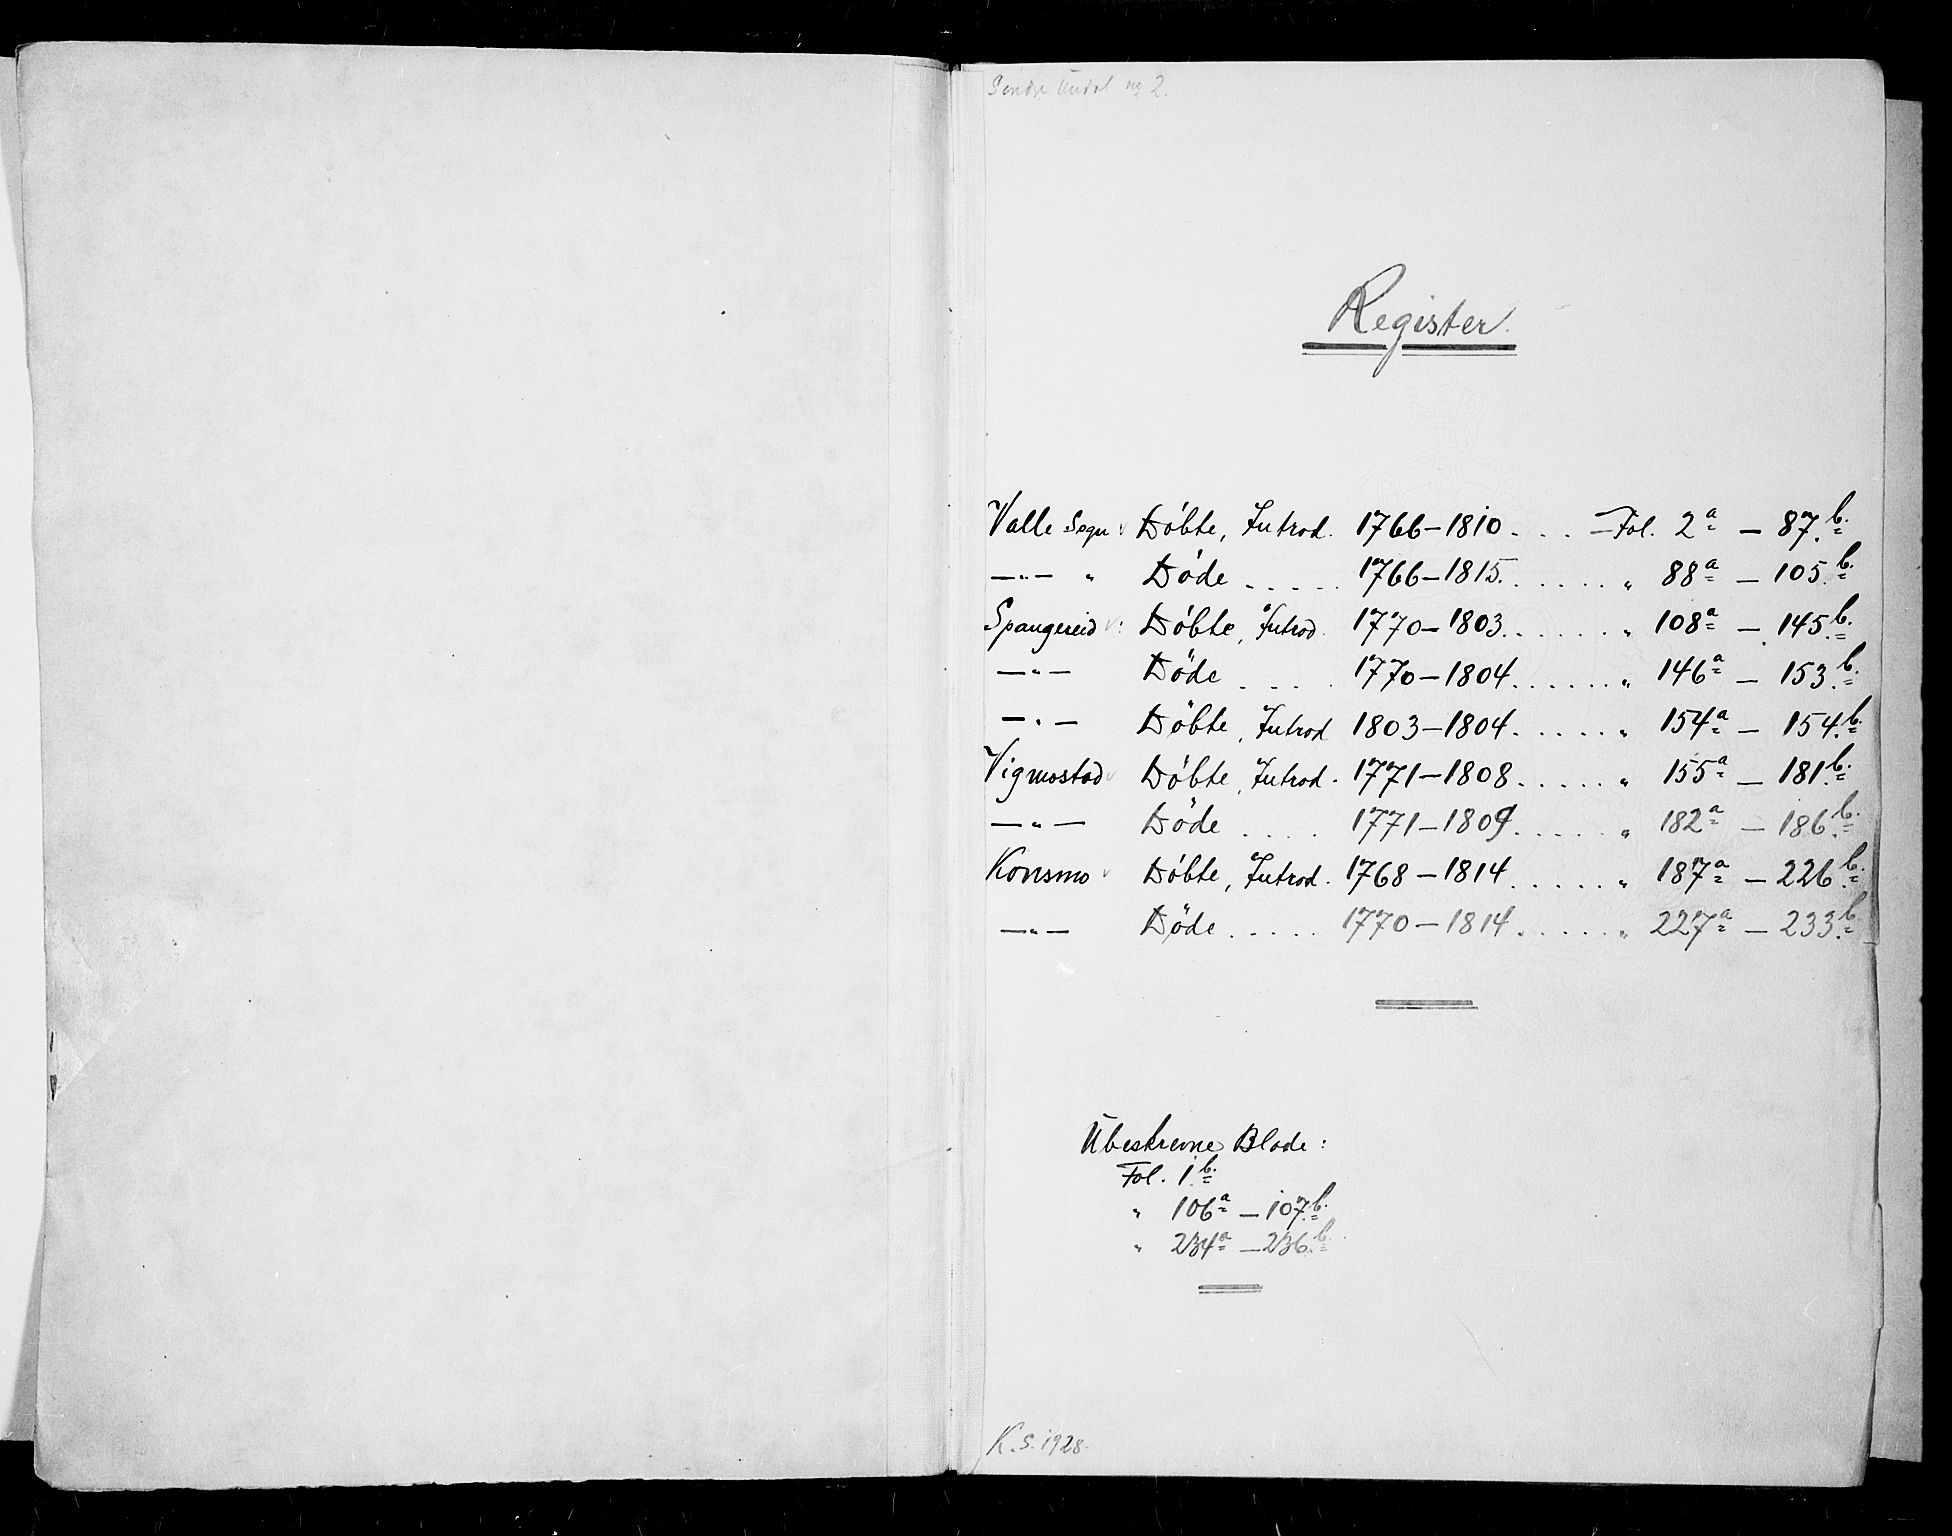 Søndre Undal no 2.
Register.
Valle Sogn Döbte, Introd. 1766–1810. . . . Fol. 2a – 87b.
—"— " Döde . . . . . 1766–1815. . . . . . " 88a – 105b.
Spangereid : Döbte, Introd. 1770–1803. . . . . . " 108a – 145b.
—"— Döde . . . . 1770–1804. . . . . . " 146a – 153b.
—"— Döbte, Introd 1803–1804. . . . . . " 154a – 154b.
Vigmostad Döbte, Introd. 1771–1808. . . . . . " 155a – 181b.
—"— Döde . . . . 1771–1809. . . . . . " 182a – 186b.
Konsmo Döbte, Introd. 1768–1814. . . . . . " 187a – 226b.
—"— Döde . . . . . 1770–1814. . . . . . " 227a – 233b.
Ubeskrevne Blade:
Fol. 1b.
" 106a – 107b.
" 234a – 236b.
K. S. 1928.